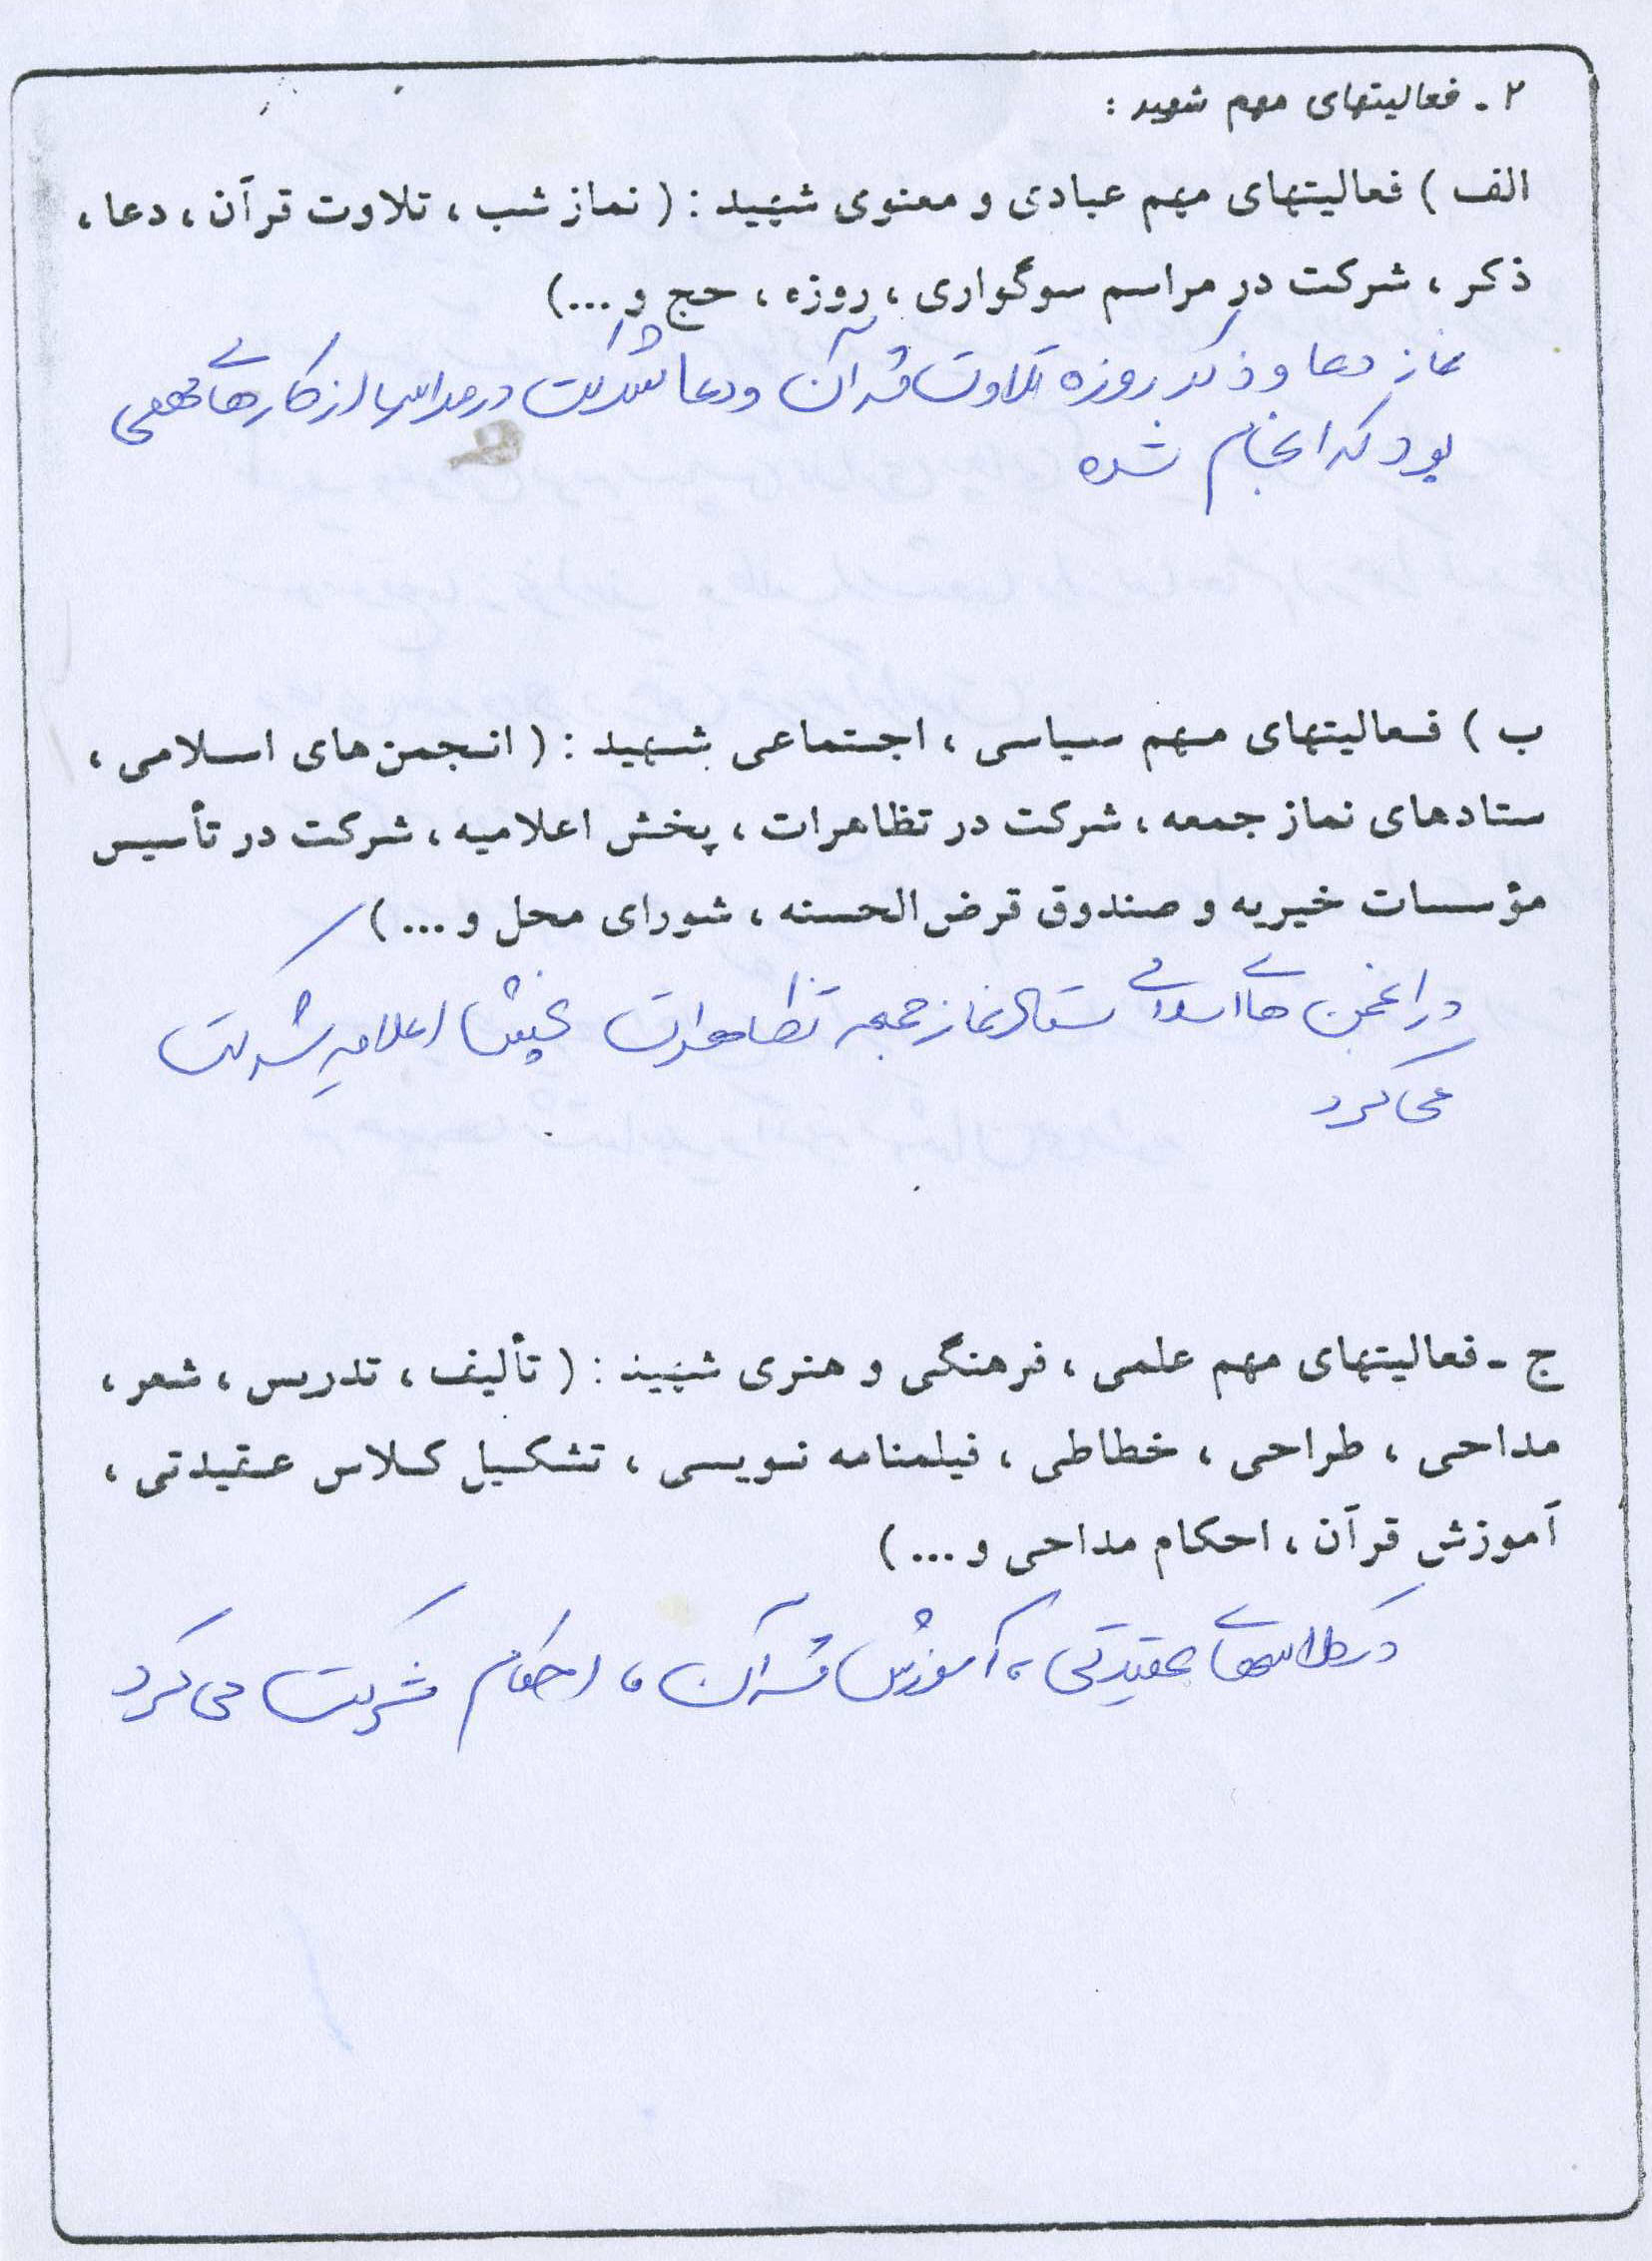 ۲ - فعالیتهای مهم شهید :
الف ) فعالیتهای مهم عبادی و معنوی شهید : ( نماز شب ، تلاوت قرآن ، دعا ،
ذکر ، شرکت در مراسم سوگواری ، روزه ، حج و ...)
نماز دعا و ذکر روزه تلاوت قرآن و دعا شرکت در مراسم از کارهای مهمی
بود که انجام شده
ب ) فعالیتهای مهم سیاسی ، اجتماعی شهید : ( انجمن‌های اسلامی ،
ستادهای نماز جمعه ، شرکت در تظاهرات ، پخش اعلامیه ، شرکت در تأسیس
مؤسسات خیریه و صندوق قرض‌الحسنه ، شورای محل و ... )
در انجمن های اسلامی ستاد نماز جمعه تظاهرات پخش اعلامیه شرکت
می کرد
ج - فعالیتهای مهم علمی ، فرهنگی و هنری شهید : ( تألیف ، تدریس ، شعر ،
مداحی ، طراحی ، خطاطی ، فیلمنامه نویسی ، تشکیل کلاس عقیدتی ،
آموزش قرآن ، احکام مداحی و ... )
در کلاسهای عقیدتی ، آموزش قرآن ، احکام شرکت می کرد